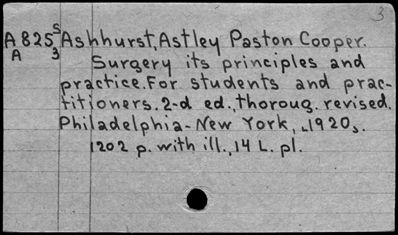 3
A 825 S Ashhurst, Astley Paston Cooper.
A 3 Surgery its principles and
practice. For students and prac-
titioners. 2-d ed., thoroug. revised.
Philadelphia-New York, 1920.
1202 p. with ill., 14 L. pl.